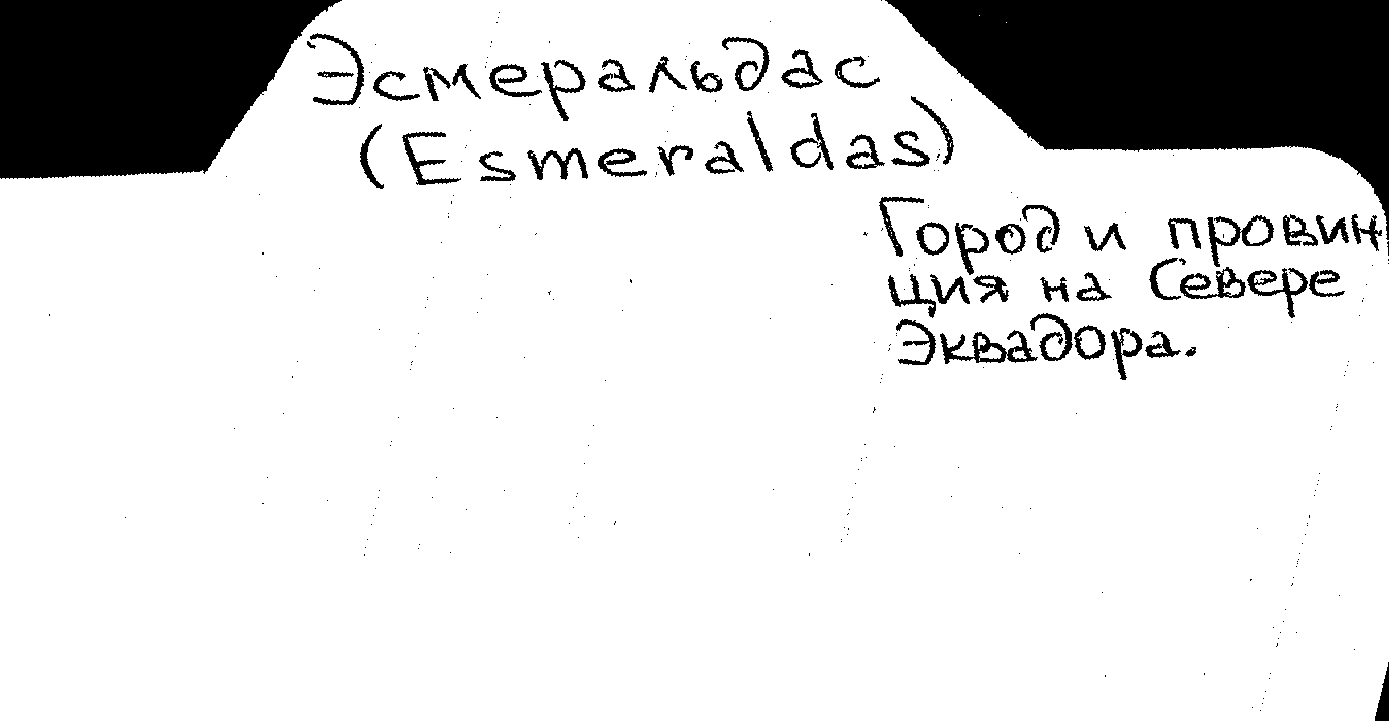 Эсмеральдас
(Esmeraldas)
Город и провин
ция на Севере
Эквадора.